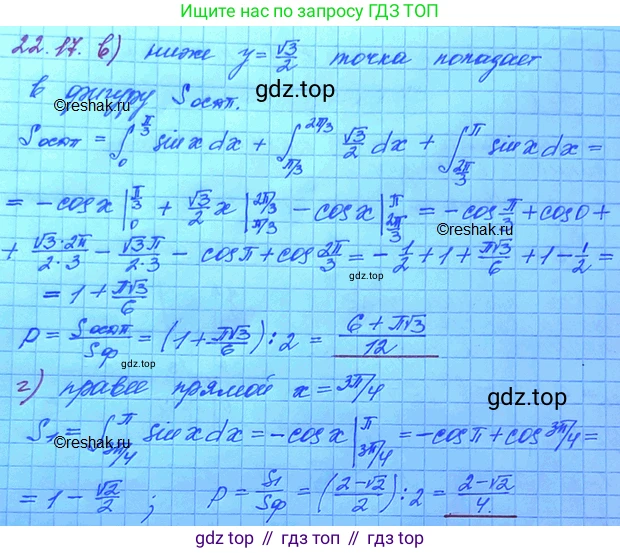 Ищите нас по запросу ГДЗ ТОП
22.17. в) ниже y = √3/2 точка попадает
в фигуру Sостт.
gdz.top
©reshak.ru
©reshak.ru
Sостт = ∫₀^{π/3} sin x dx + ∫_{π/3}^{2π/3} √3/2 dx + ∫_{2π/3}^{π} sin x dx =
= -cos x |₀^{π/3} + √3/2 x |_{π/3}^{2π/3} - cos x |_{2π/3}^{π} = -cos π/3 + cos 0 +
+ √3·2π/2·3 - √3π/2·3 - cos π + cos 2π/3 = -1/2 + 1 + π√3/6 + 1 - 1/2 =
gdz.top
= 1 + π√3/6
P = Sостт/Sф = (1 + π√3/6) : 2 = 6 + π√3/12
г) правее прямой x = 3π/4
gdz.top
S₁ = ∫_{3π/4}^{π} sin x dx = -cos x |_{3π/4}^{π} = -cos π + cos 3π/4 =
©reshak.ru
©reshak.ru
= 1 - √2/2 ; P = S₁/Sф = (2-√2/2) : 2 = 2-√2/4.
gdz.top // гдз топ // gdz.top // гдз топ